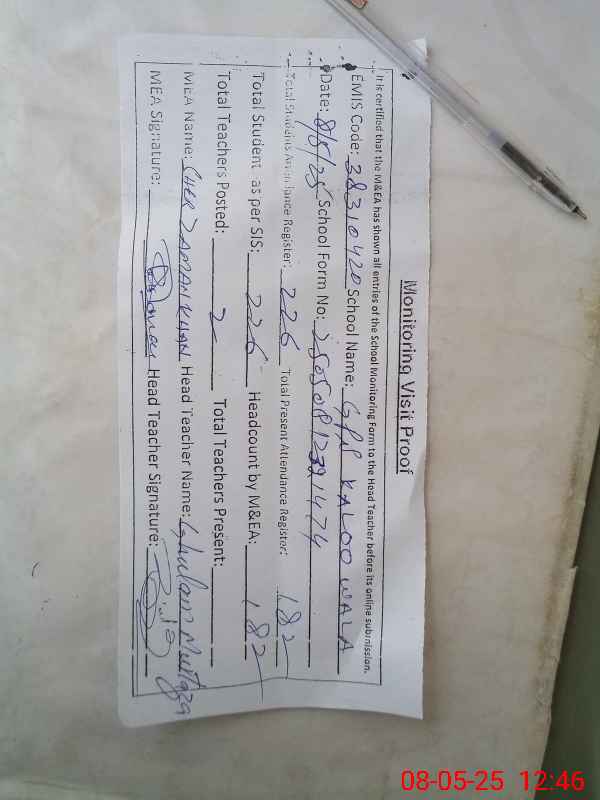 Monitoring Visit Proof
It is certified that the M&EA has shown all entries of the School Monitoring Form to the Head Teacher before its online submission.
EMIS Code: 38310420 School Name: GPS KALOO WALA
Date: 8/5/25 School Form No:
Total Students Attendance Register: 226 Total Present Attendance Register: 182
Total Student as per SIS: 226 Headcount by M&EA: 182
Total Teachers Posted: 2 Total Teachers Present:
MEA Name: SHER ZAMAN KHAN Head Teacher Name: Ghulam Murtaza
MEA Signature: Head Teacher Signature:
08-05-25 12:46